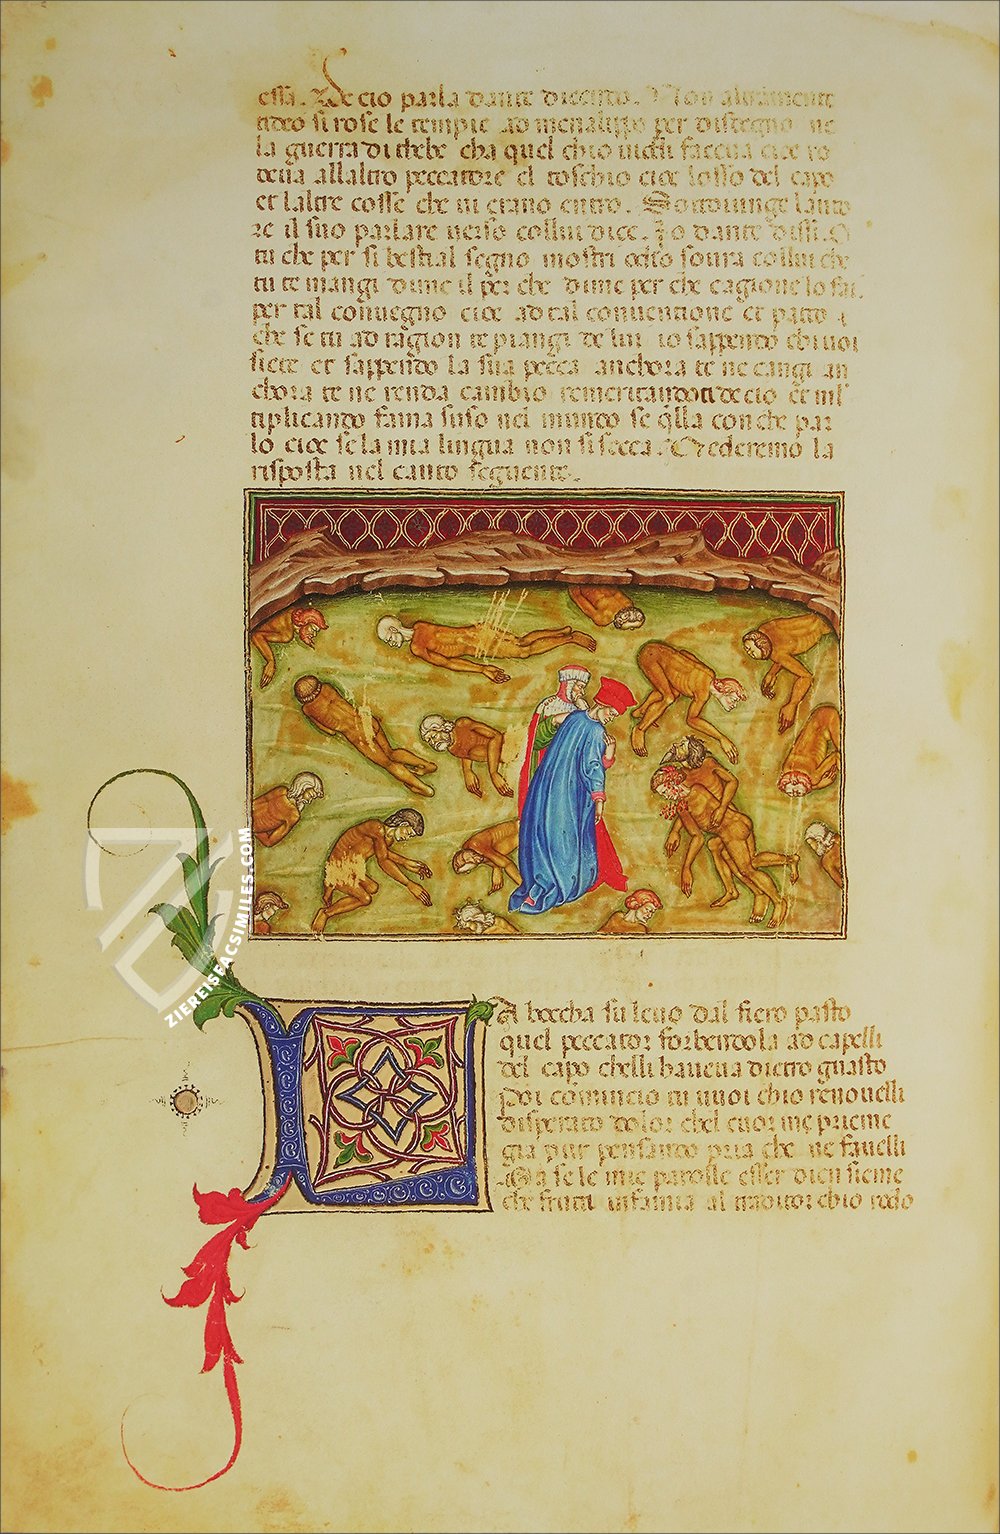 essa. De cio parla dante dicendo. Non altrimente
tideo si rose le tempie ad menalippo per disdegno ne
la guerra di thebe cha quel chio viddi faceva cioe ro
deva allaltro peccatore el teschio cioe losso del capo
et laltre cosse che vi erano entro. Sottoiunge lauto
re il suo parlare verso collui dice. Io dante dissi. O
tu che per si bestial segno mostri odio sovra collui che
tu te mangi dime il per che dime per che cagione lo fai.
per tal convegno cioe ad tal conventione et patto
che se tu ad ragion te piangi de lui io sappendo chi voi
siete et sappendo la sua pecca anchora te ne cangi an
chora te ne renda cambio remeritandoti de cio et ml
tiplicando fama suso nel mundo se qlla con che par
lo cioe se la mia lingua non si secca. Et vederemo la
risposta nel canto seguente.
LA boccha su levo dal fiero pasto
quel peccator forbendola ad capelli
del capo chelli haveva dietro guasto
Poi comincio tu vuoi chio renovelli
disperato dolor chel cuor me prieme
gia pur pensando pria che ne favelli
Ma se le mie parolle esser dien sieme
che frutti infamia al traditor chio rodo
ZIEREISFACSIMILES.COM